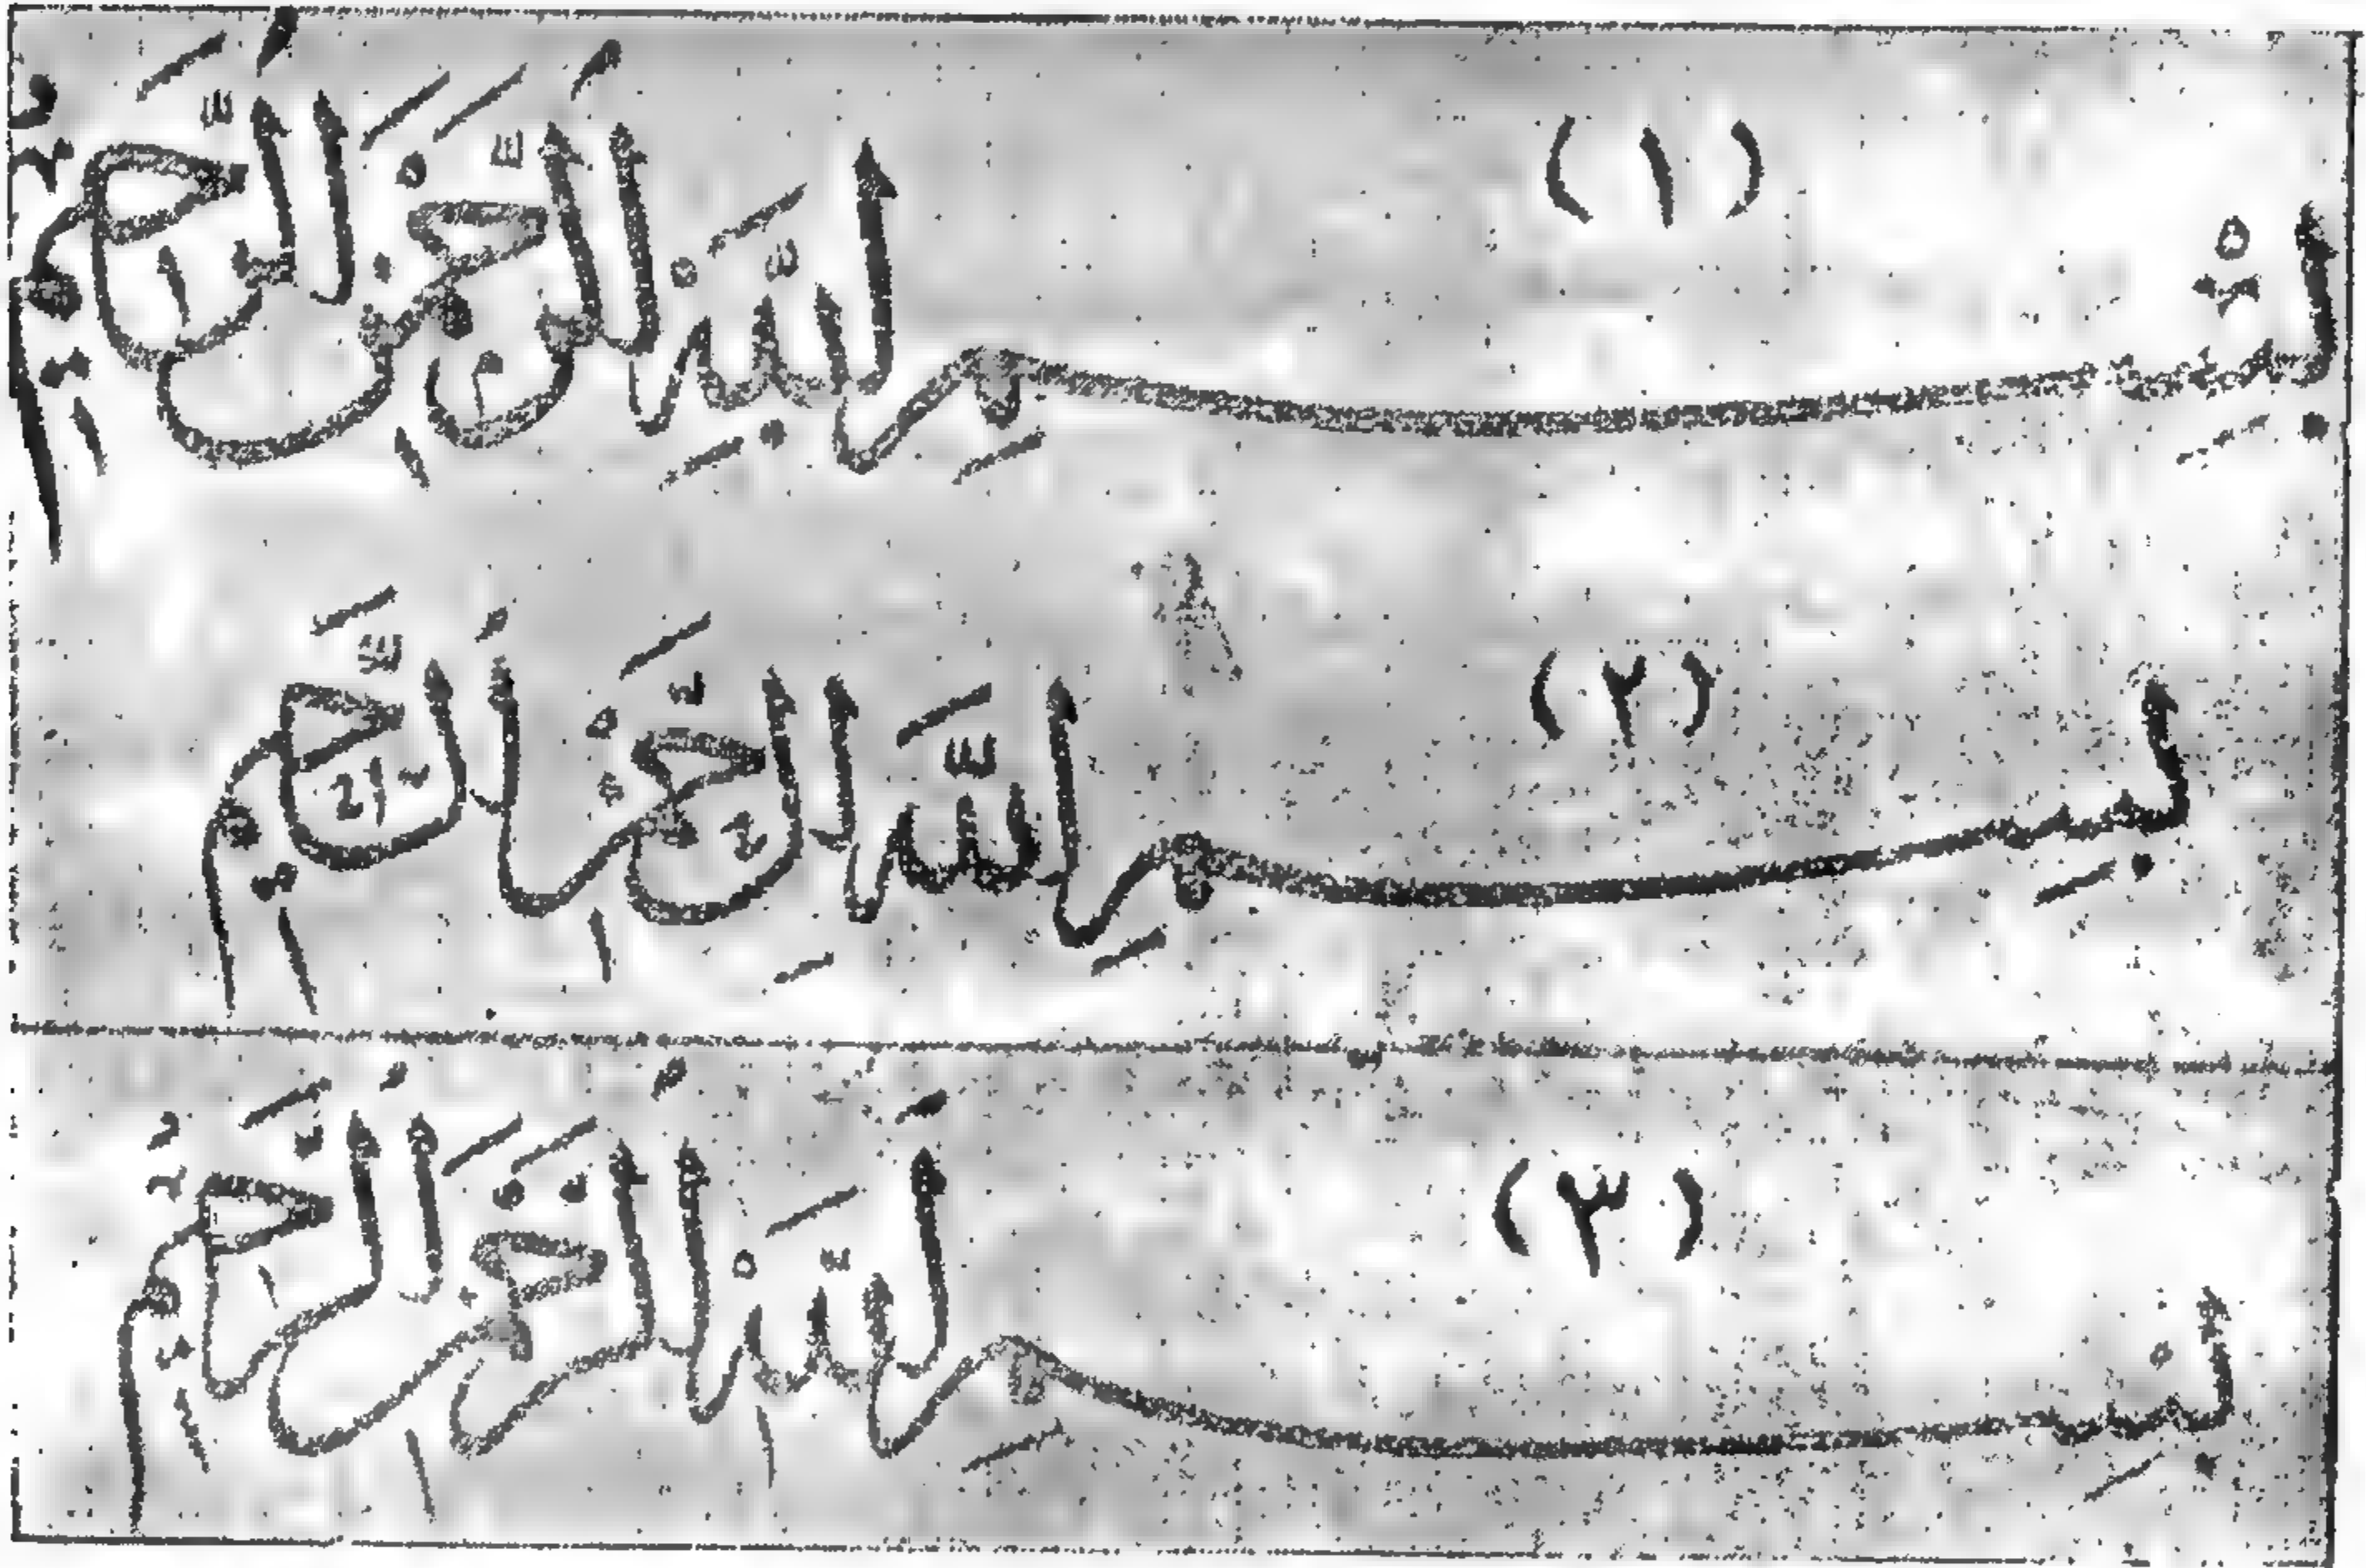 (١)
بِسْمِ اللَّهِ الرَّحْمَٰنِ الرَّحِيمِ
(٢)
بِسْمِ اللَّهِ الرَّحْمَٰنِ الرَّحِيمِ
(٣)
بِسْمِ اللَّهِ الرَّحْمَٰنِ الرَّحِيمِ